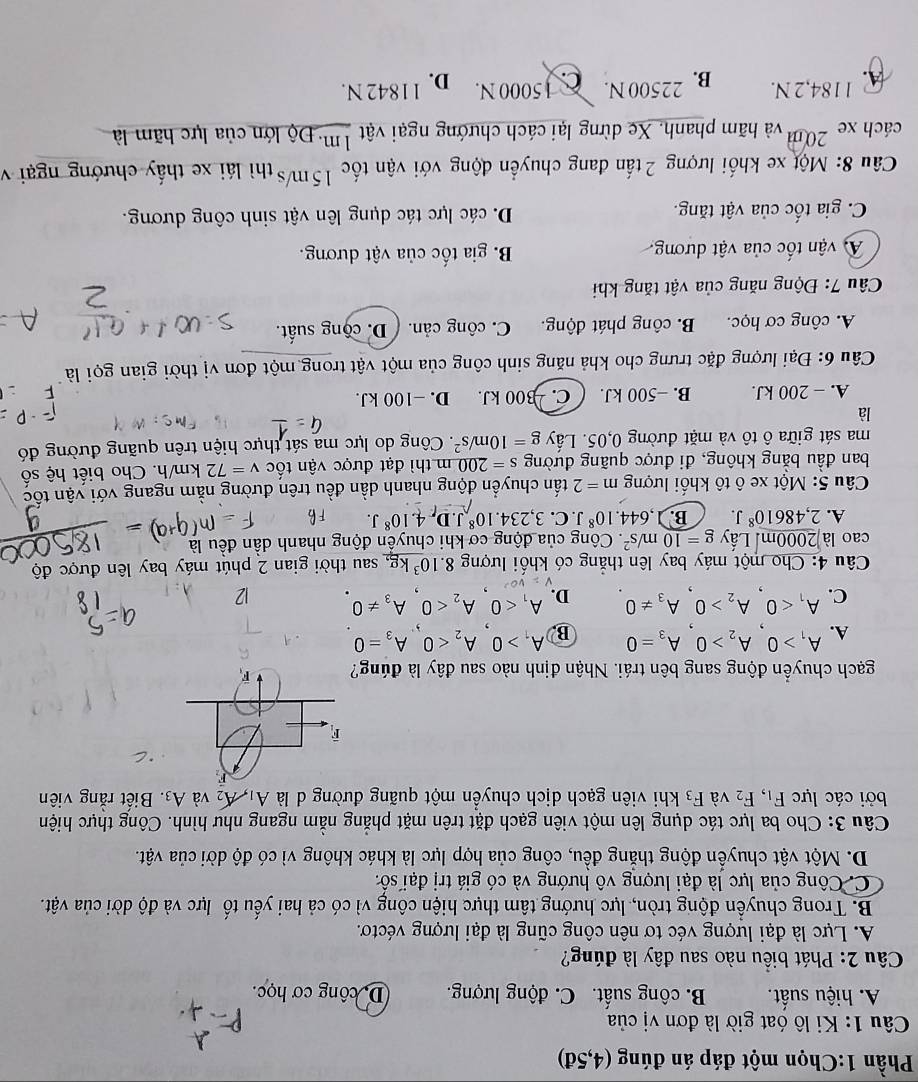 Phần 1:Chọn một đáp án đúng (4,5đ)
Câu 1: Ki lô óat giờ là đơn vị của
A. hiệu suất. B. công suất. C. động lượng. D. công cơ học.
Câu 2: Phát biểu nào sau đây là đúng?
A. Lực là đại lượng véc tơ nên công cũng là đại lượng véctơ.
B. Trong chuyển động tròn, lực hướng tâm thực hiện công vì có cả hai yếu tố lực và độ dời của vật.
C. Công của lực là đại lượng vô hướng và có giá trị đại số.
D. Một vật chuyển động thẳng đều, công của hợp lực là khác không vì có độ dời của vật.
Câu 3: Cho ba lực tác dụng lên một viên gạch đặt trên mặt phẳng nằm ngang như hình. Công thực hiện
bởi các lực F₁, F₂ và F₃ khi viên gạch dịch chuyển một quãng đường d là A₁, A₂ và A₃. Biết rằng viên
gạch chuyển động sang bên trái. Nhận định nào sau đây là đúng?
A. A₁ > 0, A₂ > 0, A₃ = 0 B. A₁ > 0, A₂ < 0, A₃ = 0.
C. A₁ < 0, A₂ > 0, A₃ ≠ 0. D. A₁ < 0, A₂ < 0, A₃ ≠ 0.
a = 5/18
Câu 4: Cho một máy bay lên thẳng có khối lượng 8.10³ kg, sau thời gian 2 phút máy bay lên được độ
cao là 2000m. Lấy g = 10 m/s². Công của động cơ khi chuyển động nhanh dần đều là
A. 2,486108 J. B. 1,644.10⁸ J. C. 3,234.10⁸ J. D. 4.10⁸ J.
F = m(g+a) = 185000/9
Câu 5: Một xe ô tô khối lượng m = 2 tấn chuyển động nhanh dần đều trên đường nằm ngang với vận tốc
ban đầu bằng không, đi được quãng đường s = 200 m thì đạt được vận tốc v = 72 km/h. Cho biết hệ số
ma sát giữa ô tô và mặt đường 0,05. Lấy g = 10m/s². Công do lực ma sát thực hiện trên quãng đường đó
là
a = 1
A. − 200 kJ. B. −500 kJ. C. −300 kJ. D. −100 kJ.
Câu 6: Đại lượng đặc trưng cho khả năng sinh công của một vật trong một đơn vị thời gian gọi là
A. công cơ học. B. công phát động. C. công cản. D. công suất.
Câu 7: Động năng của vật tăng khi
A. vận tốc của vật dương. B. gia tốc của vật dương.
C. gia tốc của vật tăng. D. các lực tác dụng lên vật sinh công dương.
Câu 8: Một xe khối lượng 2 tấn đang chuyển động với vận tốc 15m/s thì lái xe thấy chướng ngại v
cách xe 20m và hãm phanh. Xe dừng lại cách chướng ngại vật 1m. Độ lớn của lực hãm là
A. 1184,2 N. B. 22500 N. C. 15000 N. D. 11842 N.